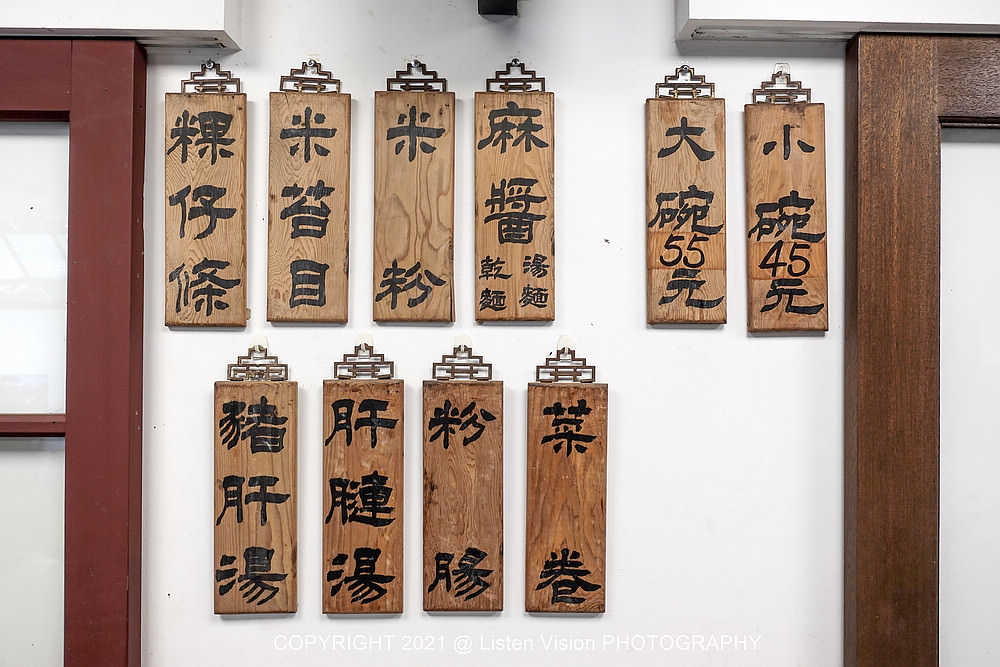 粿仔條
米苔目
米粉
麻醬
湯麵
乾麵
大碗
55
元
小碗
45
元
豬肝湯
肝腱湯
粉腸
菜卷
COPYRIGHT 2021 @ Listen Vision PHOTOGRAPHY